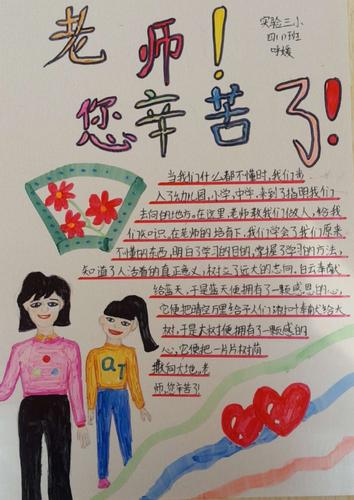 老师!
您辛苦了!
实验三小
四(1)班
呼媛
当我们什么都不懂时,我们走
入了幼儿园,小学,中学,来到了指明我们
去向的地方。在这里,老师教我们做人,给我
们灰识,在老师的培育下,我们学会了我们原来
不懂的东西,明白了学习的目的,掌握了学习的方法,
知道了人活着的真正意义,树立了远大的志向,白云奉献
给蓝天,于是蓝天便拥有了一颗感恩的心,
它便把晴空万里给予人们;树叶奉献给大
树,于是大树便拥有了一颗感的
心,它便把一片片树荫
撒向大地。老
师,您辛苦了!
aT